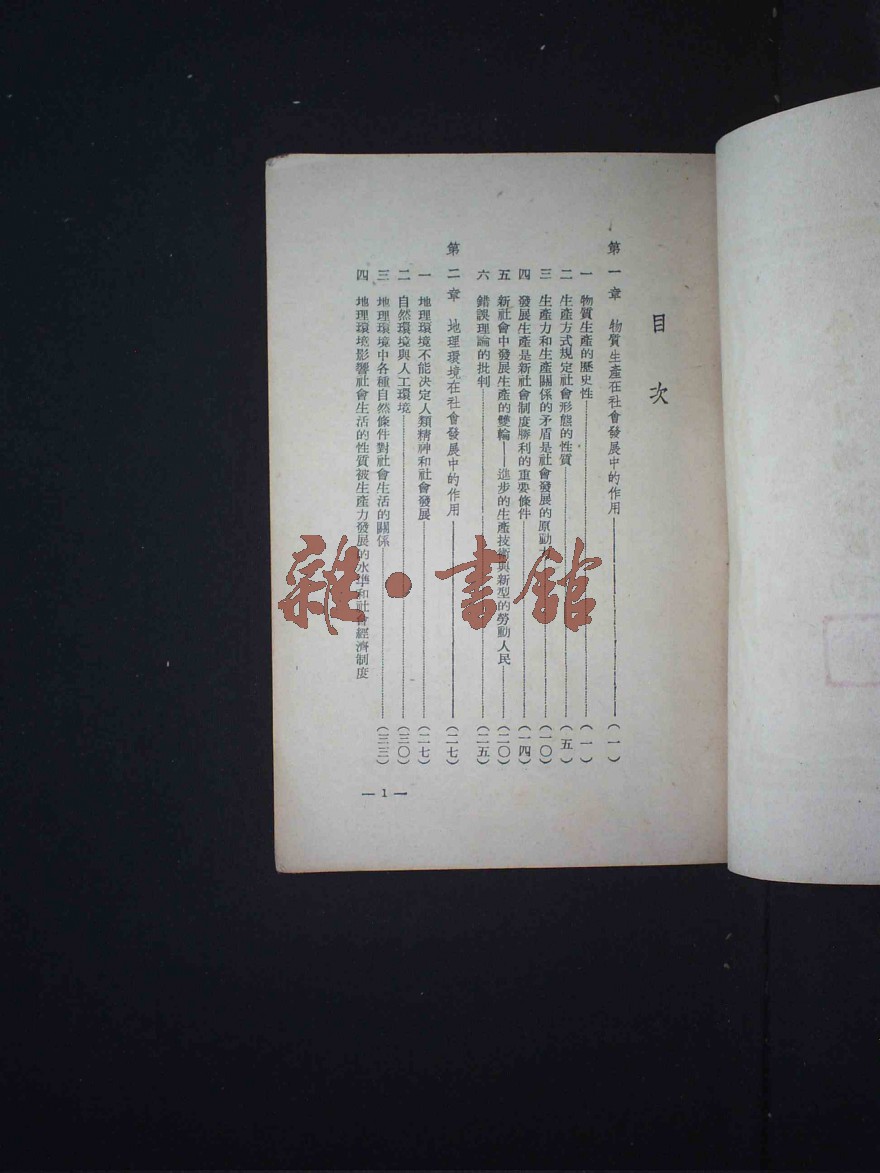 目次
第一章 物質生產在社會發展中的作用………(一)
一 物質生產的歷史性………(一)
二 生產方式規定社會形態的性質………(五)
三 生產力和生產關係的矛盾是社會發展的原動………(一〇)
四 發展生產是新社會制度勝利的重要條件………(一四)
五 新社會中發展生產的雙輪——進步的生產技術與新型的勞動人民………(二〇)
六 錯誤理論的批判………(二五)
第二章 地理環境在社會發展中的作用………(二七)
一 地理環境不能決定人類精神和社會發展………(二七)
二 自然環境與人工環境………(三〇)
三 地理環境中各種自然條件對社會生活的關係………(三三)
四 地理環境影響社會生活的性質被生產力發展的水準和社會經濟制度
— 1 —
雜·書館